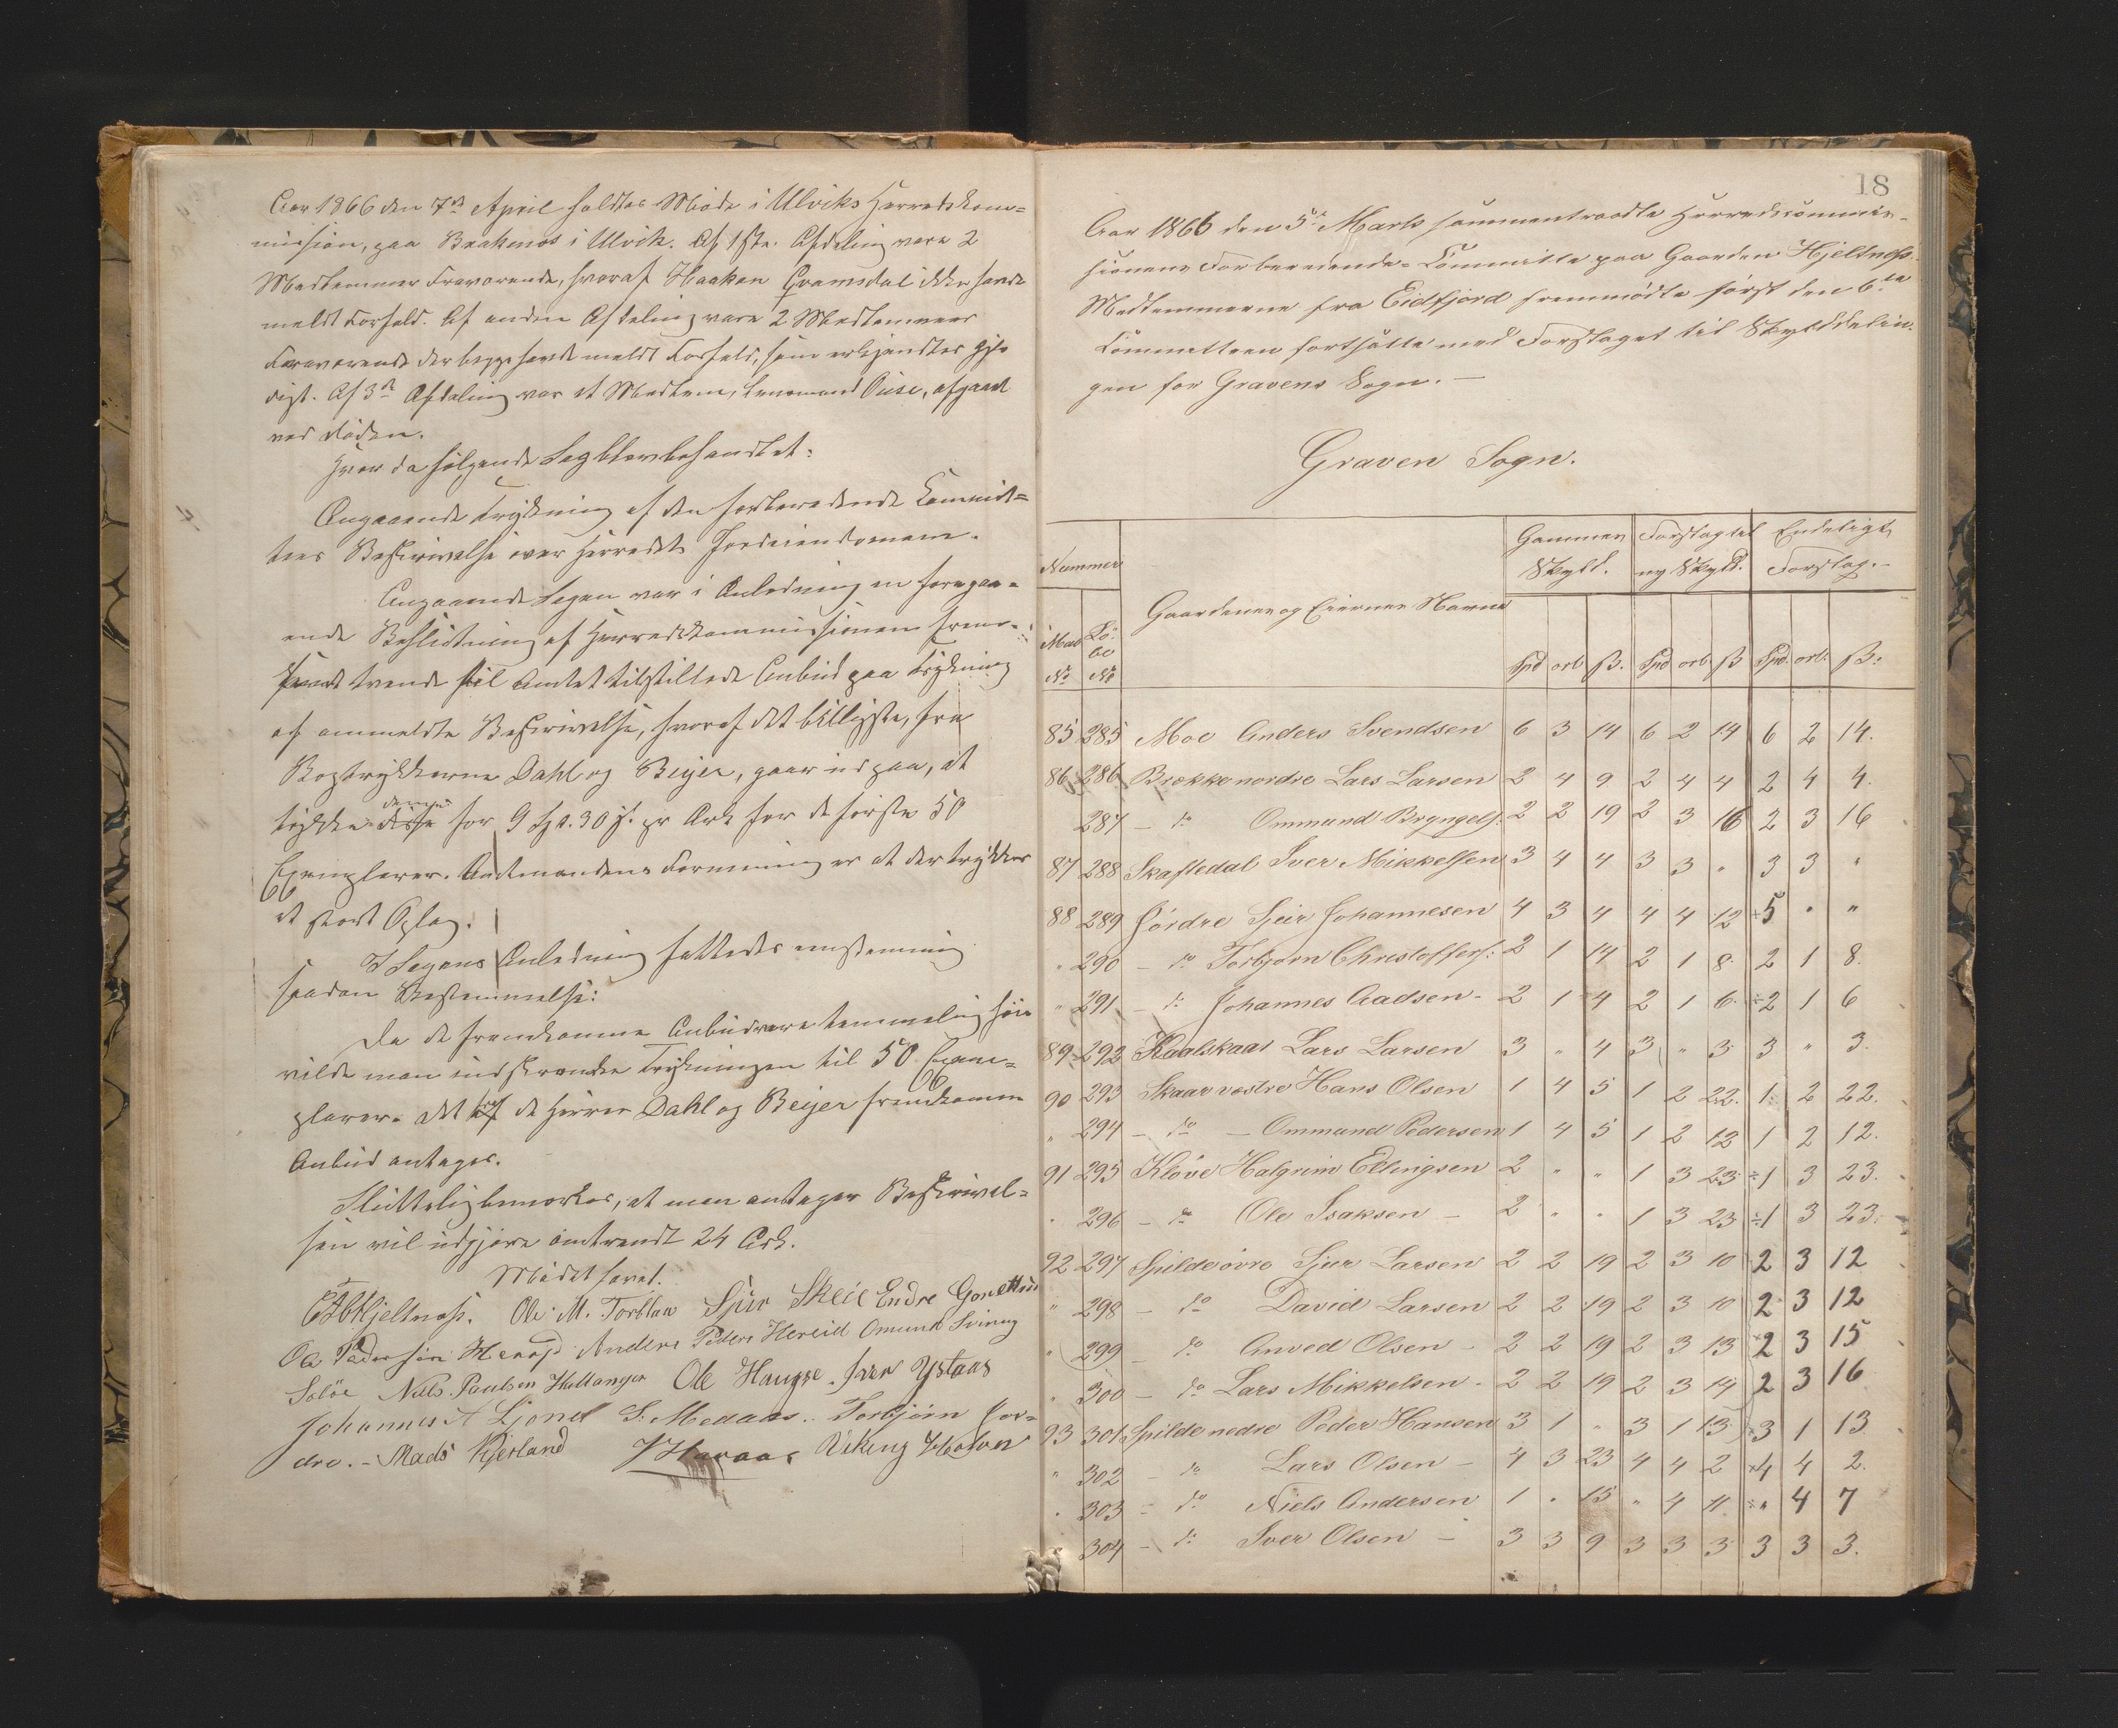 Aar 1866 den 7de April holdtes Møde i Ulviks Herredskom=
mission, paa Brakenæs i Ulvik. Af 1ste Afdeling vare 2
Medlemmer fraværende, hvoraf Haaken Tramsdal ikke havde
meldt Forfald. Af anden Afdeling vare 2 Medlemmer
fraværende der begge havde meldt Forfald, som erkjendtes gyl=
digt. Af 3de Afdeling var et Medlem, Lensmand Duse, afgaaet
ved Døden.
Hvor da følgende Sag blev behandlet:
Angaaende Trykning af den forberedende Commit=
tees Beskrivelse over Herredets Jordeiendomme.
Angaaende Sagen var i Anledning en foregaa=
ende Beslutning af Herredskommissionen frem=
trende til Amtet tilstillede Anbud paa Trykning
af anmeldte Beskrivelse, hvoraf det billigste, fra
Bogtrykkerne Dahl og Beyer, gaar ud paa, at
trykke denne for 9 Spd. 30 ß. pr Ark for de første 50
Exemplarer. Amtmandens Formening er at der trykkes
et stort Oplag.
I Sagens Anledning fattedes enstemmig
saadan Bestemmelse:
Da de fremkomne Anbud vare temmelig høie
vilde man indskrænke Trykningen til 50 Exem=
plarer. Det af de Herrer Dahl og Beyer fremkomne
Anbud antages.
Sluttelig bemærkes, at man antager Beskrivel=
sen vil udgjøre omtrendt 24 Ark.
Mødet hævet.
Hjeltnæss. Ole M. Torblaa Sjur Skeie Endre
Ole Pedersen Anders Peders Hereid Omund
Nils Paulsen Hallanger Ole Haugse. Iver Ystaas
Johannes A Ljonel S. Medaas.. Torbjørn Jor=
dre. - Mads Kjerland Viking
18
Aar 1866 den 5te Marts sammentraadte Herredscommis=
sionens Forberedende=Committee paa Gaarden Hjeltnæss.
Medlemmerne fra Eidfjord fremmødte først den 6te
Committeen fortsatte med Forslaget til Skylddelin=
gen for Gravens Sogn. —
Graven Sogn.
Nummer Gaardenes og Eiernes Navne Gammel Skyld. Forslag til ny Skyld. Endeligt Forslag.
Matr No Løbe No Spd ort ß. Spd ort ß Spd. ort. ß.
85 285 Moe Anders Svendsen 6 3 14 6 2 14 6 2 14.
86 286 Brækkenordre Lars Larsen 2 4 9 2 4 4 2 4 4.
287 — do Ommund Bryngels: 2 2 19 2 3 16 2 3 16
87 288 Skaftedal Iver Mikkelsen 3 4 4 3 3 " 3 3 "
88 289 Jórdre Sjur Johannesen 4 3 4 4 4 12 ÷5 " "
" 290 — do Torbjorn Christoffers: 2 1 14 2 1 8. 2 1 8.
" 291 — do Johannes Aadsen - 2 1 4 2 1 6 ÷2 1 6
89 292 Kaalskaar Lars Larsen 3 " 4 3 " 3 3 " 3.
90 293 Skaar vestre Hans Olsen 1 4 5 1 2 22. 1 2 22.
" 294 — do — Ommund Pedersen 1 4 5 1 2 12 1 2 12.
91 295 Klöve Halgrim Ellingsen 2 " " 1 3 23 ÷1 3 23.
" 296 — do Ole Isaksen — 2 " " 1 3 23 ÷1 3 23.
92 297 Spilde övre Sjur Larsen 2 2 19 2 3 10 2 3 12
" 298 — do David Larsen 2 2 19 2 3 10 2 3 12
" 299 — do Anved Olsen - 2 2 19 2 3 13 2 3 15
" 300 — do Lars Mikkelsen - 2 2 19 2 3 14 2 3 16
93 301 Spilde nedre Peder Hansen 3 1 " 3 1 13 3 1 13
" 302 — do Lars Olsen — 4 3 23 4 4 2 4 4 2.
" 303 — do Niels Andersen 1 " 15 " 4 11 ÷" 4 7
" 304 — do Iver Olsen — 3 3 9 3 3 3 3 3 3.